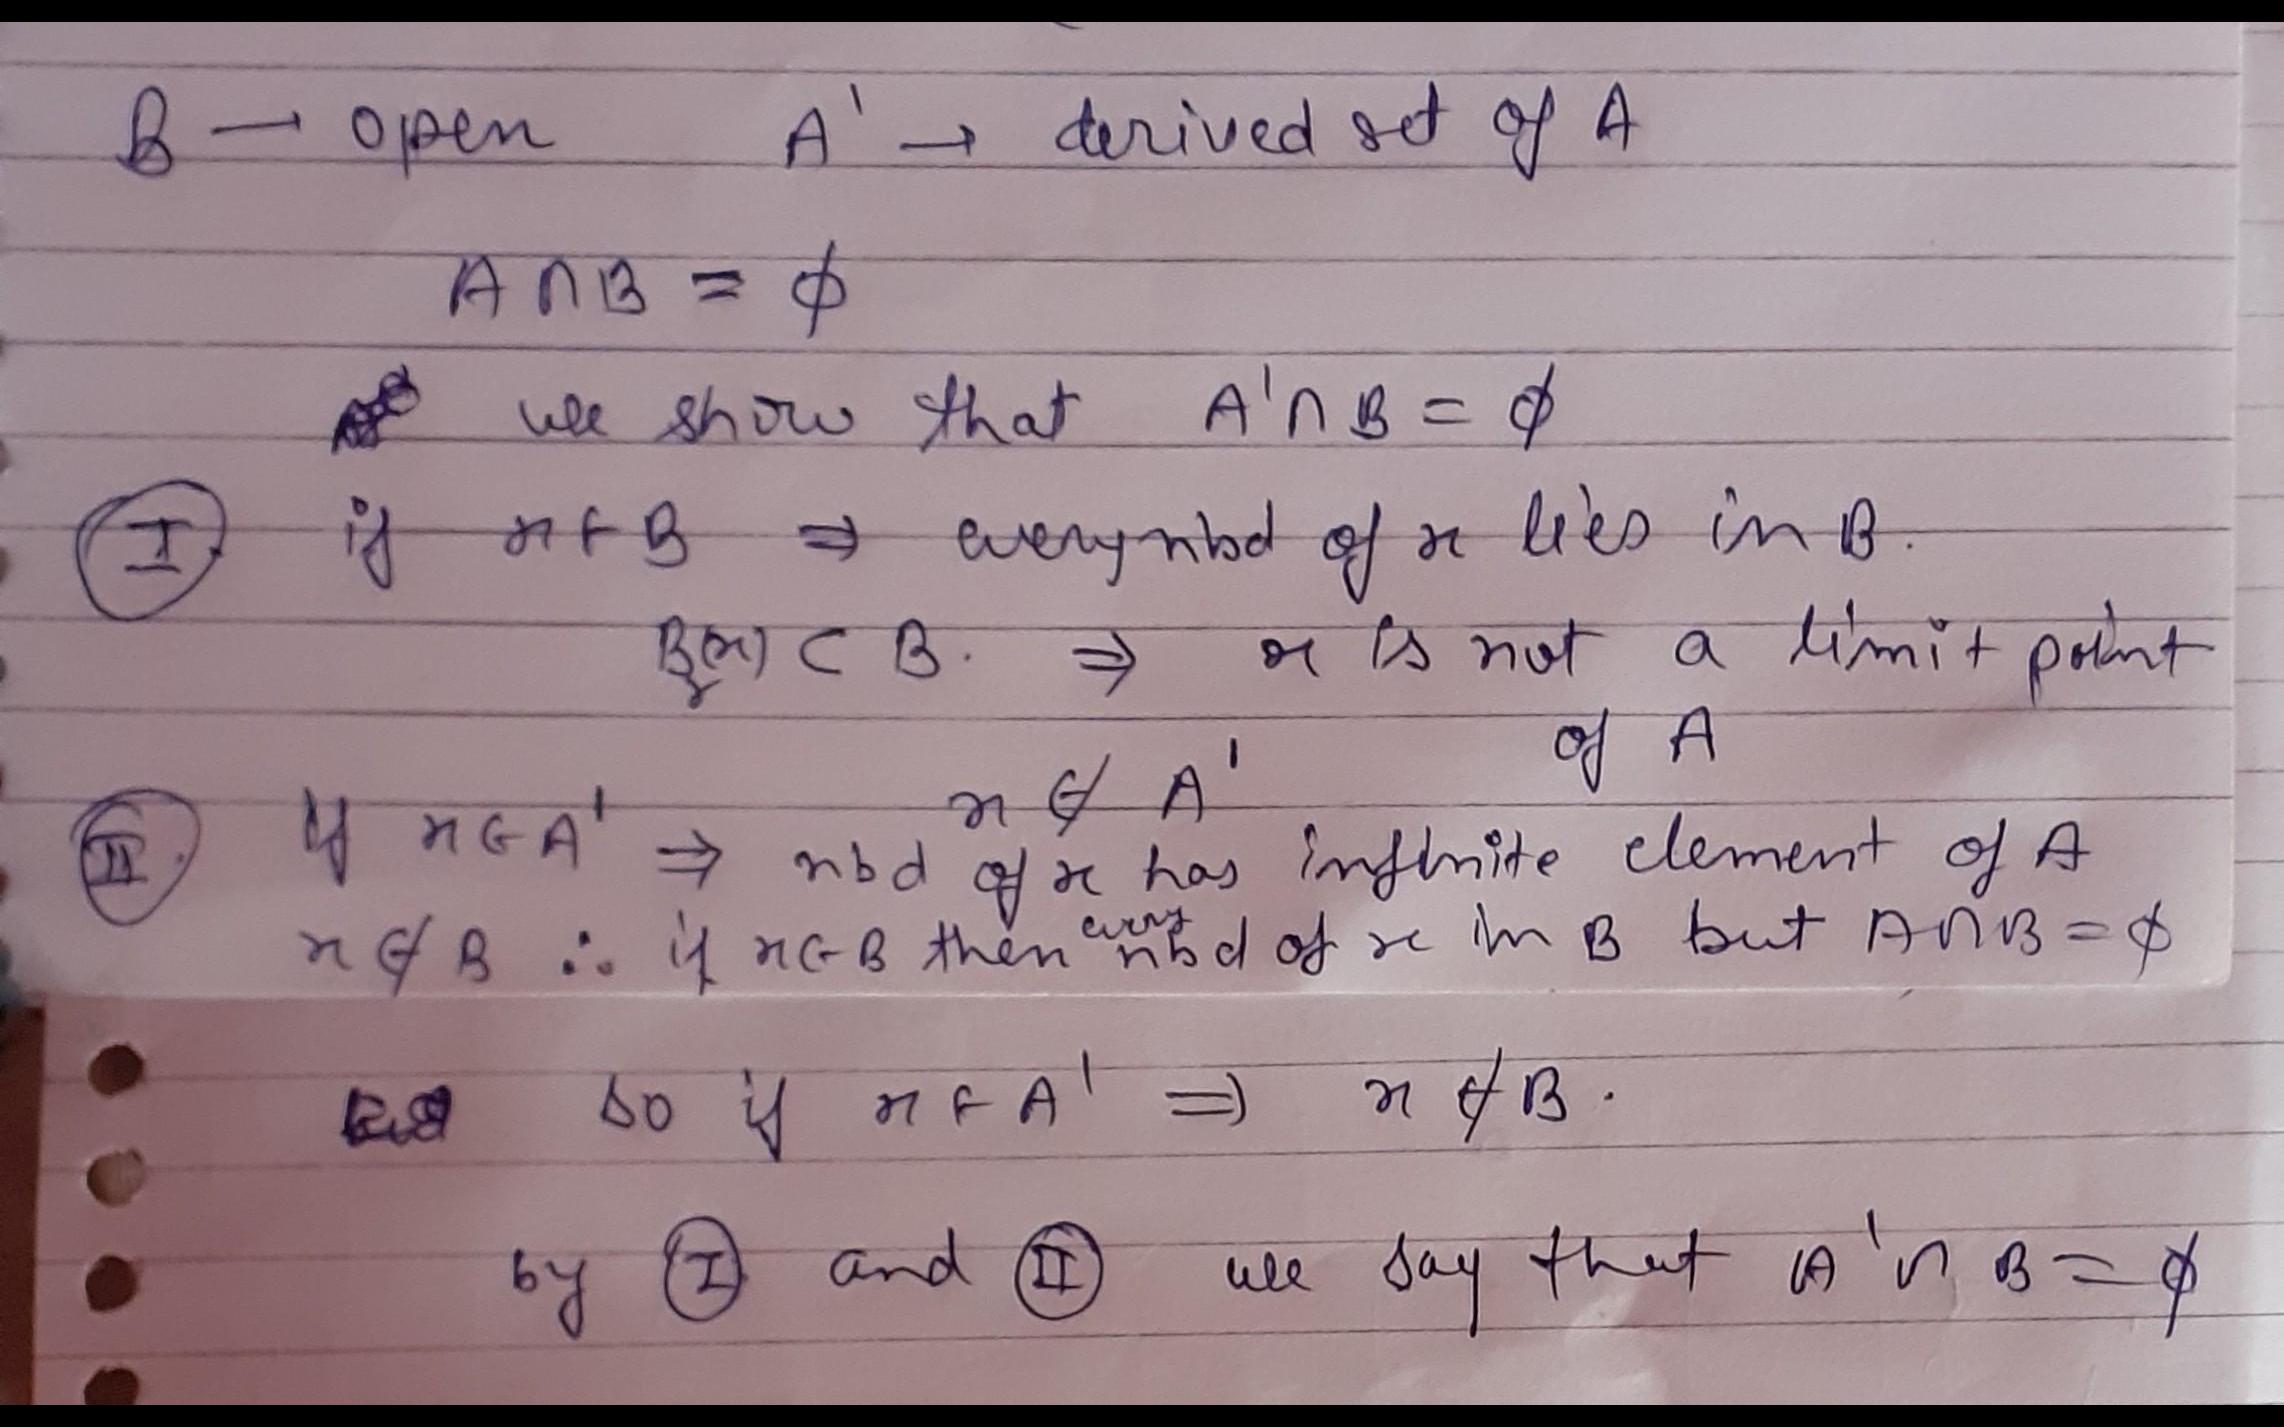 B → open A' → derived set of A
A ∩ B = ϕ
we show that A' ∩ B = ϕ
I if x ∈ B ⇒ every nbd of x lies in B.
B_r(x) ⊂ B. ⇒ x is not a limit point
of A
x ∉ A'
II. If x ∈ A' ⇒ nbd of x has infinite element of A
x ∉ B ∴ if x ∈ B then every nbd of x in B but A ∩ B = ϕ
so if x ∈ A' ⇒ x ∉ B.
by I and II we say that A' ∩ B = ϕ